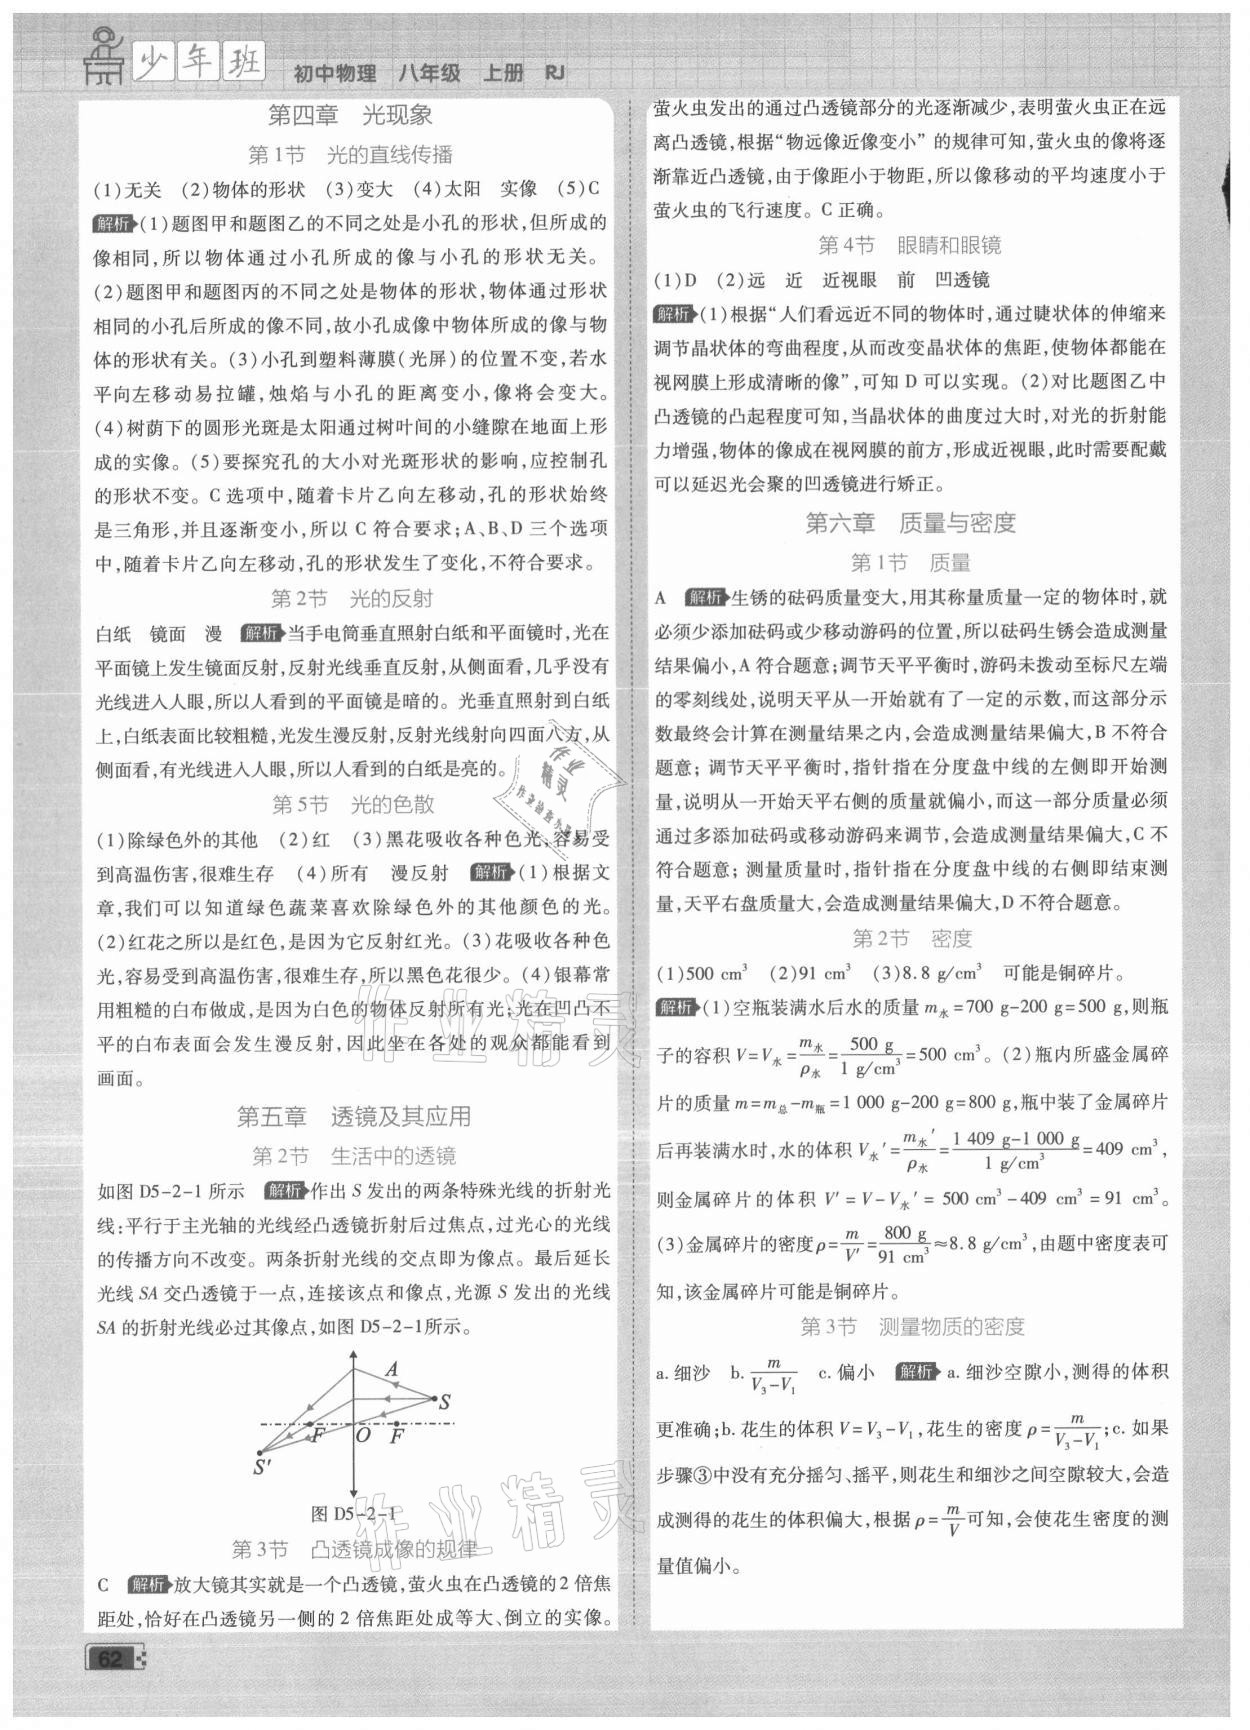 少年班 初中物理 八年级 上册 RJ
第四章 光现象
第1节 光的直线传播
(1)无关 (2)物体的形状 (3)变大 (4)太阳 实像 (5)C
解析 (1)题图甲和题图乙的不同之处是小孔的形状,但所成的
像相同,所以物体通过小孔所成的像与小孔的形状无关。
(2)题图甲和题图丙的不同之处是物体的形状,物体通过形状
相同的小孔后所成的像不同,故小孔成像中物体所成的像与物
体的形状有关。(3)小孔到塑料薄膜(光屏)的位置不变,若水
平向左移动易拉罐,烛焰与小孔的距离变小,像将会变大。
(4)树荫下的圆形光斑是太阳通过树叶间的小缝隙在地面上形
成的实像。(5)要探究孔的大小对光斑形状的影响,应控制孔
的形状不变。C选项中,随着卡片乙向左移动,孔的形状始终
是三角形,并且逐渐变小,所以 C 符合要求;A、B、D 三个选项
中,随着卡片乙向左移动,孔的形状发生了变化,不符合要求。
第2节 光的反射
白纸 镜面 漫 解析 当手电筒垂直照射白纸和平面镜时,光在
平面镜上发生镜面反射,反射光线垂直反射,从侧面看,几乎没有
光线进入人眼,所以人看到的平面镜是暗的。光垂直照射到白纸
上,白纸表面比较粗糙,光发生漫反射,反射光线射向四面八方,从
侧面看,有光线进入人眼,所以人看到的白纸是亮的。
第5节 光的色散
(1)除绿色外的其他 (2)红 (3)黑花吸收各种色光,容易受
到高温伤害,很难生存 (4)所有 漫反射 解析 (1)根据文
章,我们可以知道绿色蔬菜喜欢除绿色外的其他颜色的光。
(2)红花之所以是红色,是因为它反射红光。(3)花吸收各种色
光,容易受到高温伤害,很难生存,所以黑色花很少。(4)银幕常
用粗糙的白布做成,是因为白色的物体反射所有光;光在凹凸不
平的白布表面会发生漫反射,因此坐在各处的观众都能看到
画面。
第五章 透镜及其应用
第2节 生活中的透镜
如图 D5-2-1 所示 解析 作出 S 发出的两条特殊光线的折射光
线:平行于主光轴的光线经凸透镜折射后过焦点,过光心的光线
的传播方向不改变。两条折射光线的交点即为像点。最后延长
光线 SA 交凸透镜于一点,连接该点和像点,光源 S 发出的光线
SA 的折射光线必过其像点,如图 D5-2-1所示。
A
S
F O F
S'
图 D5-2-1
第3节 凸透镜成像的规律
C 解析 放大镜其实就是一个凸透镜,萤火虫在凸透镜的2倍焦
距处,恰好在凸透镜另一侧的2倍焦距处成等大、倒立的实像。
62
萤火虫发出的通过凸透镜部分的光逐渐减少,表明萤火虫正在远
离凸透镜,根据“物远像近像变小”的规律可知,萤火虫的像将逐
渐靠近凸透镜,由于像距小于物距,所以像移动的平均速度小于
萤火虫的飞行速度。C 正确。
第4节 眼睛和眼镜
(1)D (2)远 近 近视眼 前 凹透镜
解析 (1)根据“人们看远近不同的物体时,通过睫状体的伸缩来
调节晶状体的弯曲程度,从而改变晶状体的焦距,使物体都能在
视网膜上形成清晰的像”,可知 D 可以实现。(2)对比题图乙中
凸透镜的凸起程度可知,当晶状体的曲度过大时,对光的折射能
力增强,物体的像成在视网膜的前方,形成近视眼,此时需要配戴
可以延迟光会聚的凹透镜进行矫正。
第六章 质量与密度
第1节 质量
A 解析 生锈的砝码质量变大,用其称量质量一定的物体时,就
必须少添加砝码或少移动游码的位置,所以砝码生锈会造成测量
结果偏小,A 符合题意;调节天平平衡时,游码未拨动至标尺左端
的零刻线处,说明天平从一开始就有了一定的示数,而这部分示
数最终会计算在测量结果之内,会造成测量结果偏大,B 不符合
题意;调节天平平衡时,指针指在分度盘中线的左侧即开始测
量,说明从一开始天平右侧的质量就偏小,而这一部分质量必须
通过多添加砝码或移动游码来调节,会造成测量结果偏大,C 不
符合题意;测量质量时,指针指在分度盘中线的右侧即结束测
量,天平右盘质量大,会造成测量结果偏大,D 不符合题意。
第2节 密度
(1)500 cm³ (2)91 cm³ (3)8.8 g/cm³ 可能是铜碎片。
解析 (1)空瓶装满水后水的质量 m水=700 g-200 g=500 g,则瓶
子的容积 V=V水=m水/ρ水=500 g/1 g/cm³=500 cm³。(2)瓶内所盛金属碎
片的质量 m=m总-m瓶=1 000 g-200 g=800 g,瓶中装了金属碎片
后再装满水时,水的体积 V水′=m水′/ρ水=1 409 g-1 000 g/1 g/cm³=409 cm³,
则金属碎片的体积 V′=V-V水′=500 cm³-409 cm³=91 cm³。
(3)金属碎片的密度 ρ=m/V′=800 g/91 cm³≈8.8 g/cm³,由题中密度表可
知,该金属碎片可能是铜碎片。
第3节 测量物质的密度
a.细沙 b.m/V₃-V₁ c.偏小 解析 a.细沙空隙小,测得的体积
更准确;b.花生的体积 V=V₃-V₁,花生的密度 ρ=m/V₃-V₁;c.如果
步骤③中没有充分摇匀、摇平,则花生和细沙之间空隙较大,会造
成测得的花生的体积偏大,根据 ρ=m/V可知,会使花生密度的测
量值偏小。
作业
精灵
作业精灵
作业精灵